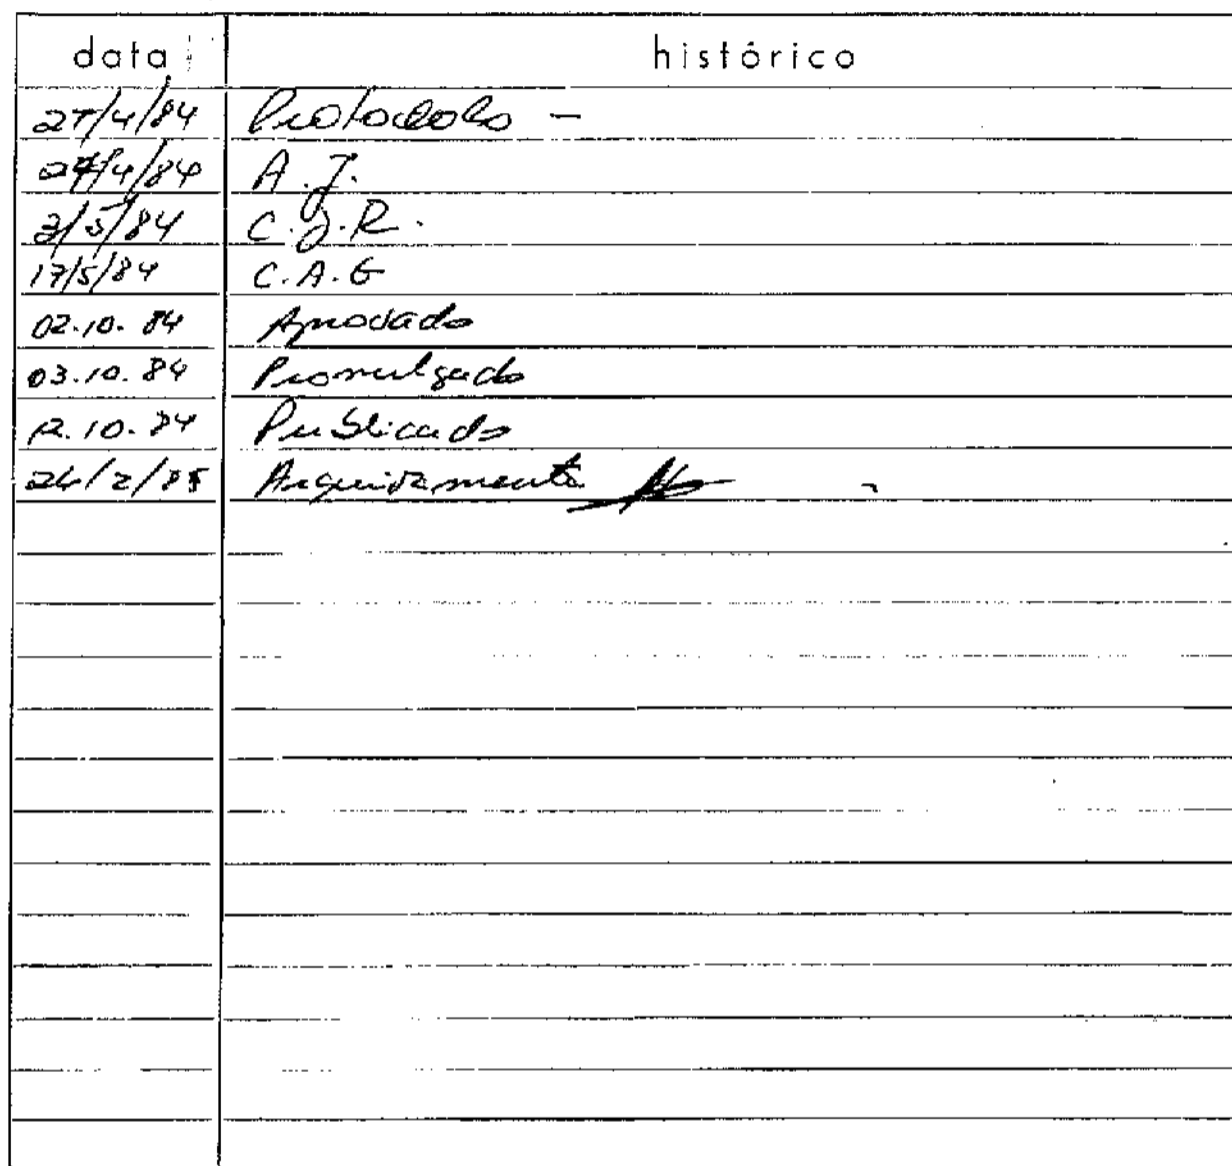 data histórico
27/4/84 Protocolo -
27/4/84 A.J.
3/5/84 C.J.R.
17/5/84 C.A.G
02.10.84 Aprovado
03.10.84 Promulgado
12.10.84 Publicado
26/2/85 Arquivamento